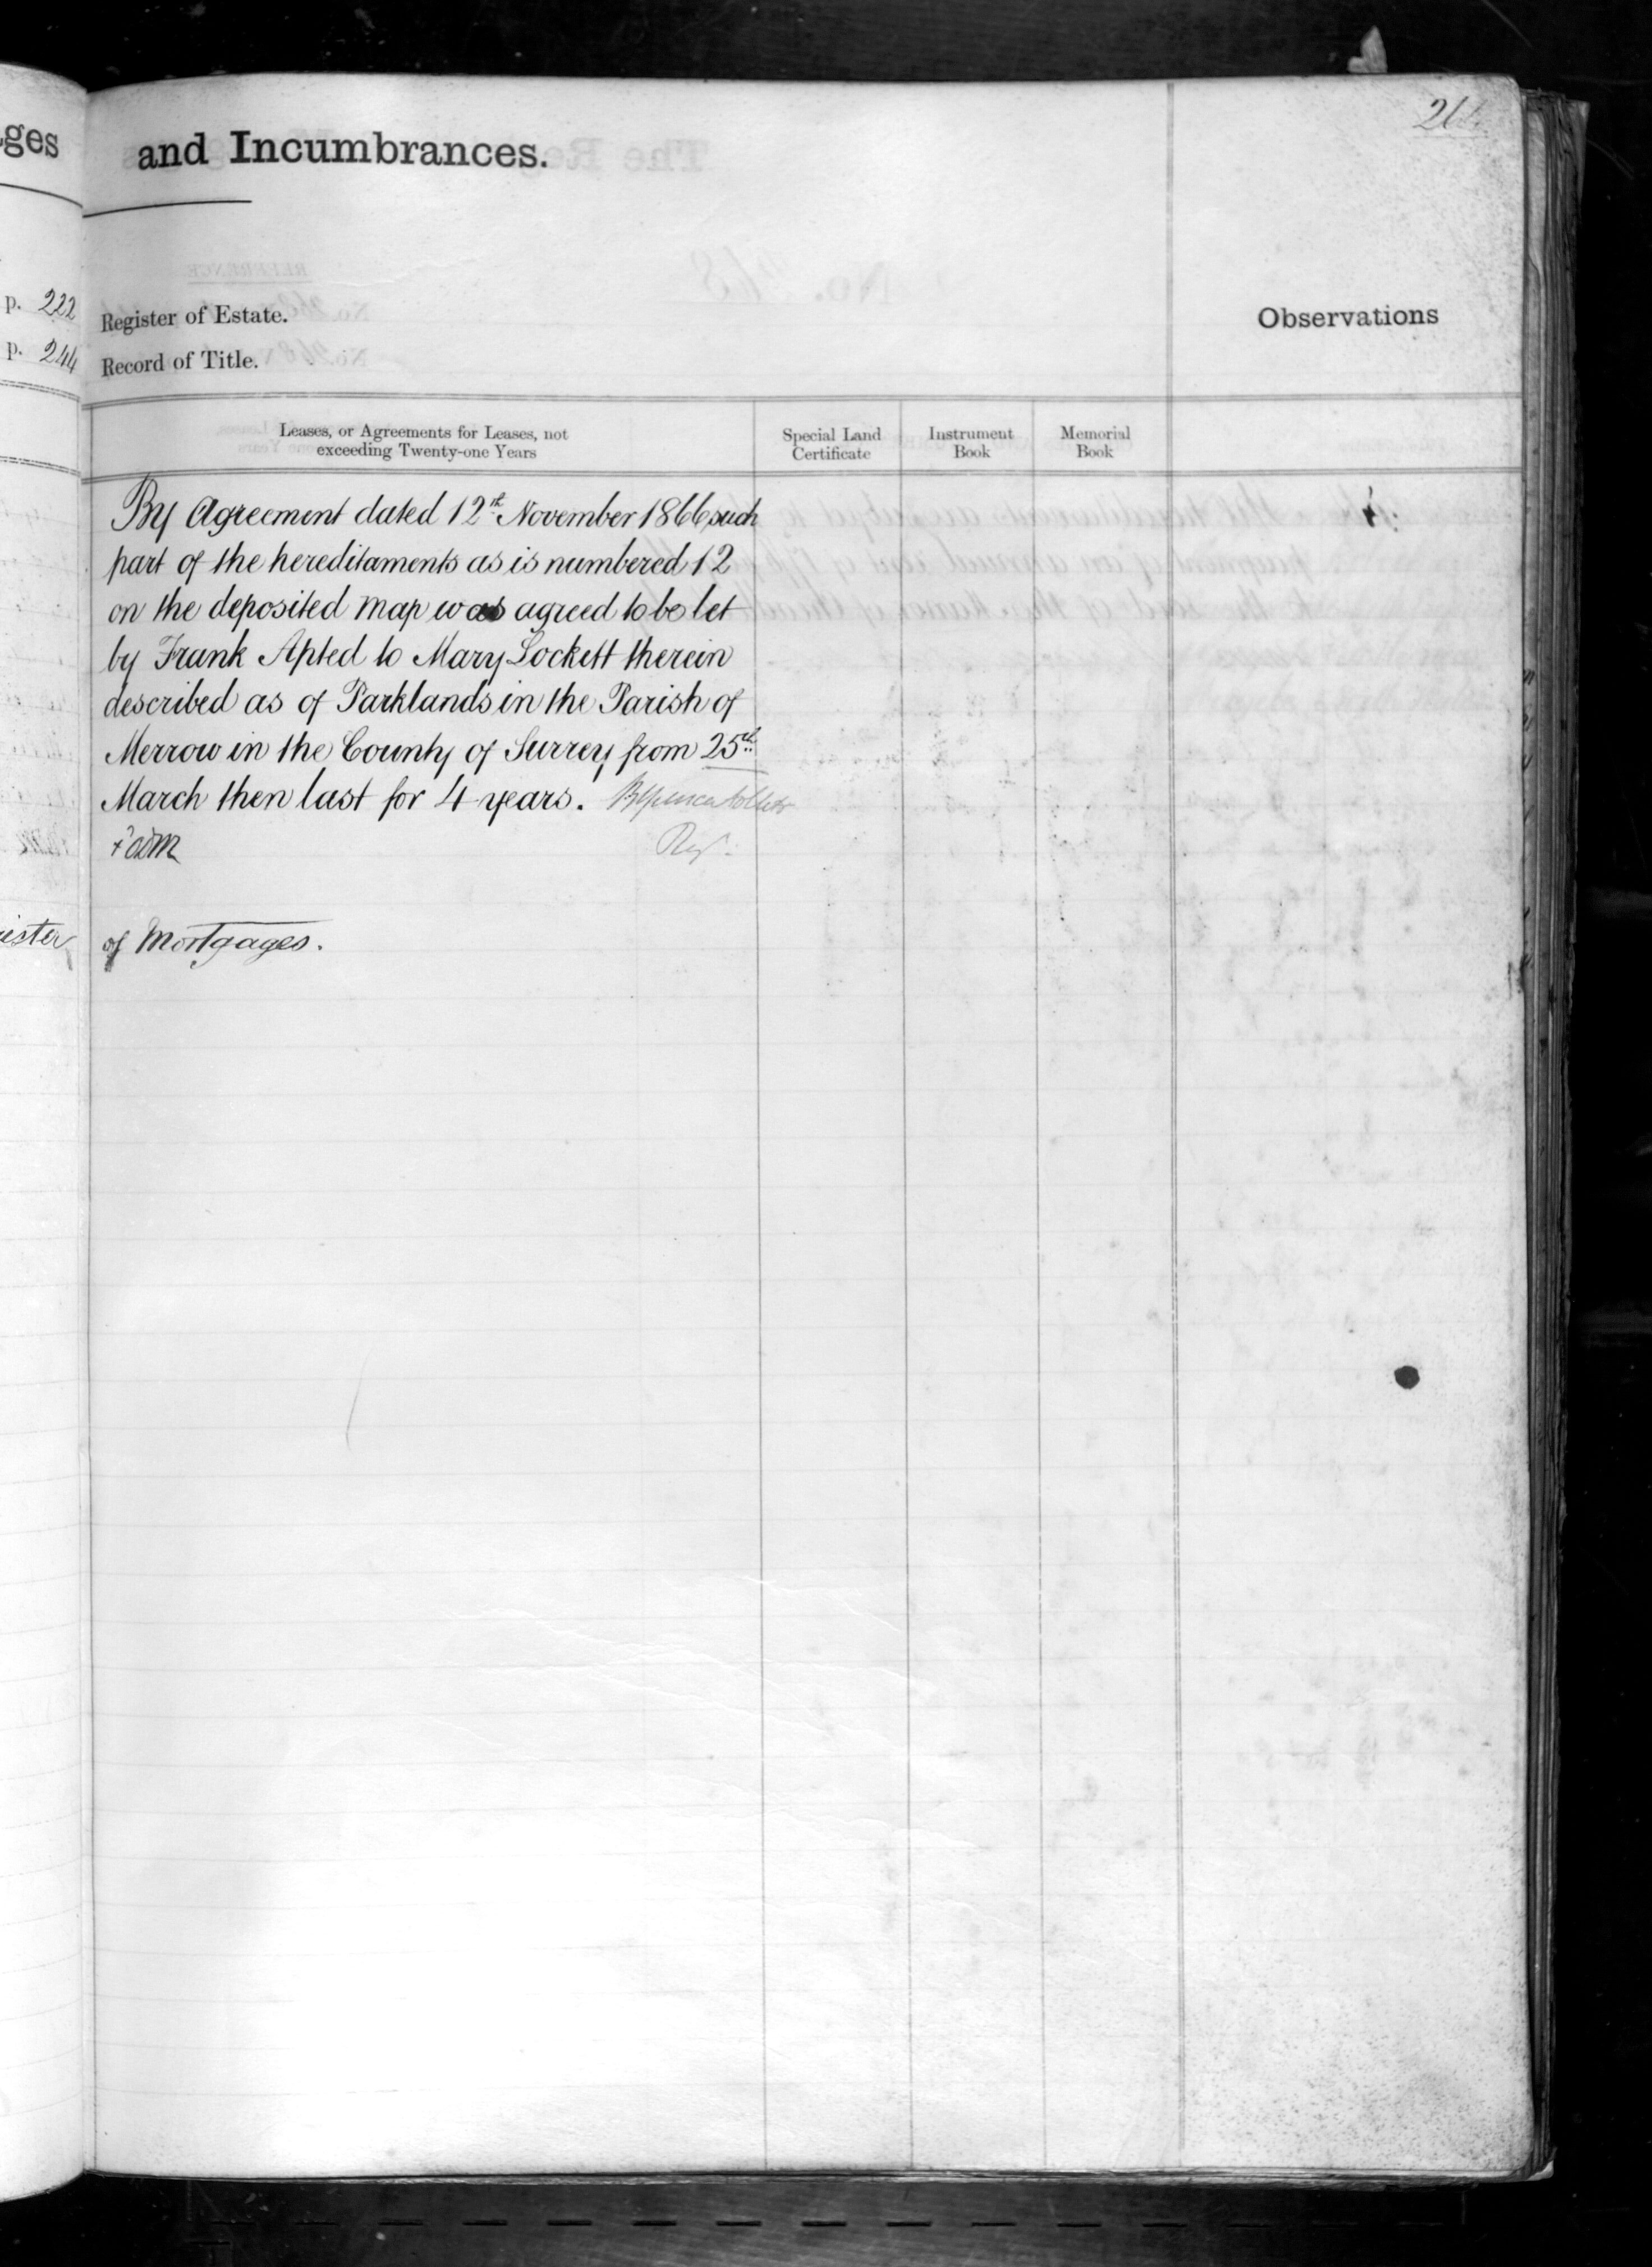 ges
and Incumbrances.
p. 222
Register of Estate.
p. 244
Record of Title.
Observations
Leases, or Agreements for Leases, not
exceeding Twenty-one Years
Special Land
Certificate
Instrument
Book
Memorial
Book
By Agreement dated 12th November 1866 such
part of the hereditaments as is numbered 12
on the deposited map was agreed to be let
by Frank Apted to Mary Lockett therein
described as of Parklands in the Parish of
Merrow in the County of Surrey from 25th
March then last for 4 years.
Reg.
ister of Mortgages.